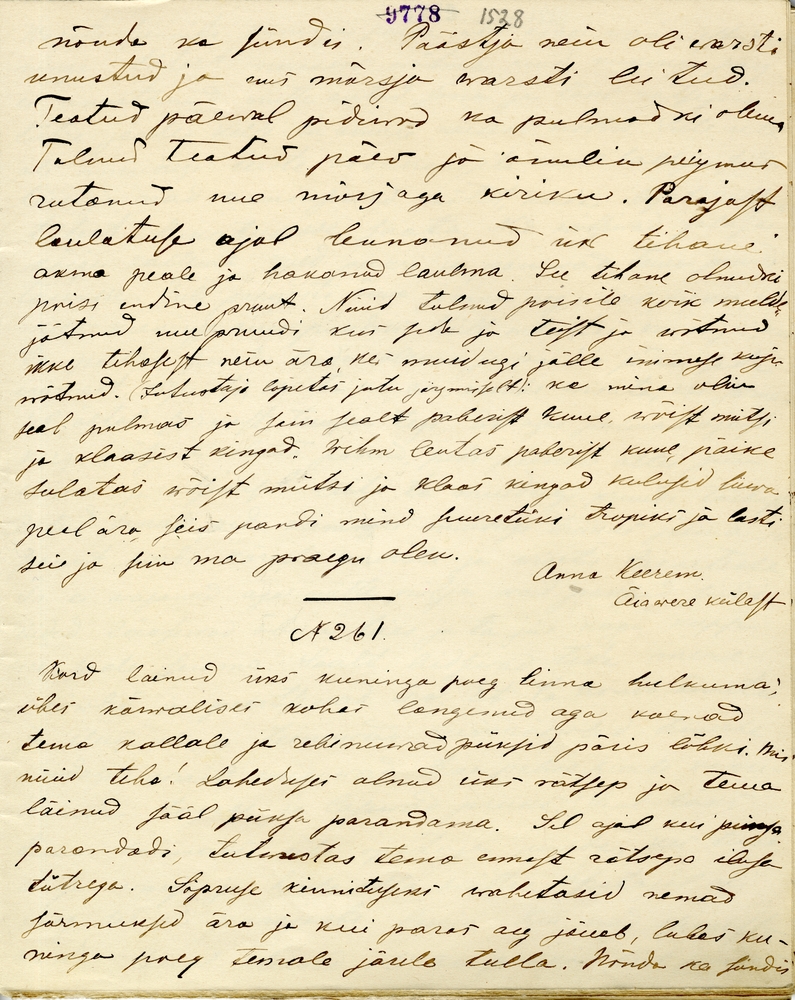 9778 1528
nõnda ka sündis. Päästja neiu oli warsti
unustud ja uus mõrsja warsti leitud.
Teatud päewal pidiwad ka pulmadki olema
Tulnud teatud päev ja ämulin peigmees
rutanud uue mõrsjaga kiriku. Parajast
laulatuse ajal lennanud üks tihane
akna peale ja hakanud laulma. See tihane olnudki
poisi endine pruut. Nüüd tulnud poisile kõik meelde,
jätnud uue pruudi kus seda ja teist ja wõtnud
ikke tihasest neiu ära, kes muidugi jälle inimese kuju
wõtnud. Jutustaja lõpetas jutu järgmiselt: ka mina olin
seal pulmas ja sain sealt paberist kuue, wõist mütsi
ja klaasist kingad. Wihm leutas paberist kuue, päike
sulatas wõist mütsi ja klaas kingad kulusid liiwa
peal ära, siis pandi mind suuretüki tropiks ja lasti
siia ja siin ma praegu olen.
Anna Keerem.
Äiawere külast
N 261.
Kord läinud üks kuninga poeg linna hulkuma;
ühes kõrwalises kohas langenud aga koerad
tema kallale ja rebinuwad püksid päris lõhki. Mis
nüüd teha! Laheduses olnud üks rätsep ja tema
läinud sääl püksa parandama. Sel ajal kui püksa
parandadi, tutwustas tema ennast rätsepa ilusa
tütrega. Sõpruse kinnituseks wahetasid nemad
sõrmuksed ära ja kui paras aeg jõuab, lubas ku-
ninga poeg temale järele tulla. Nõnda ka sündis